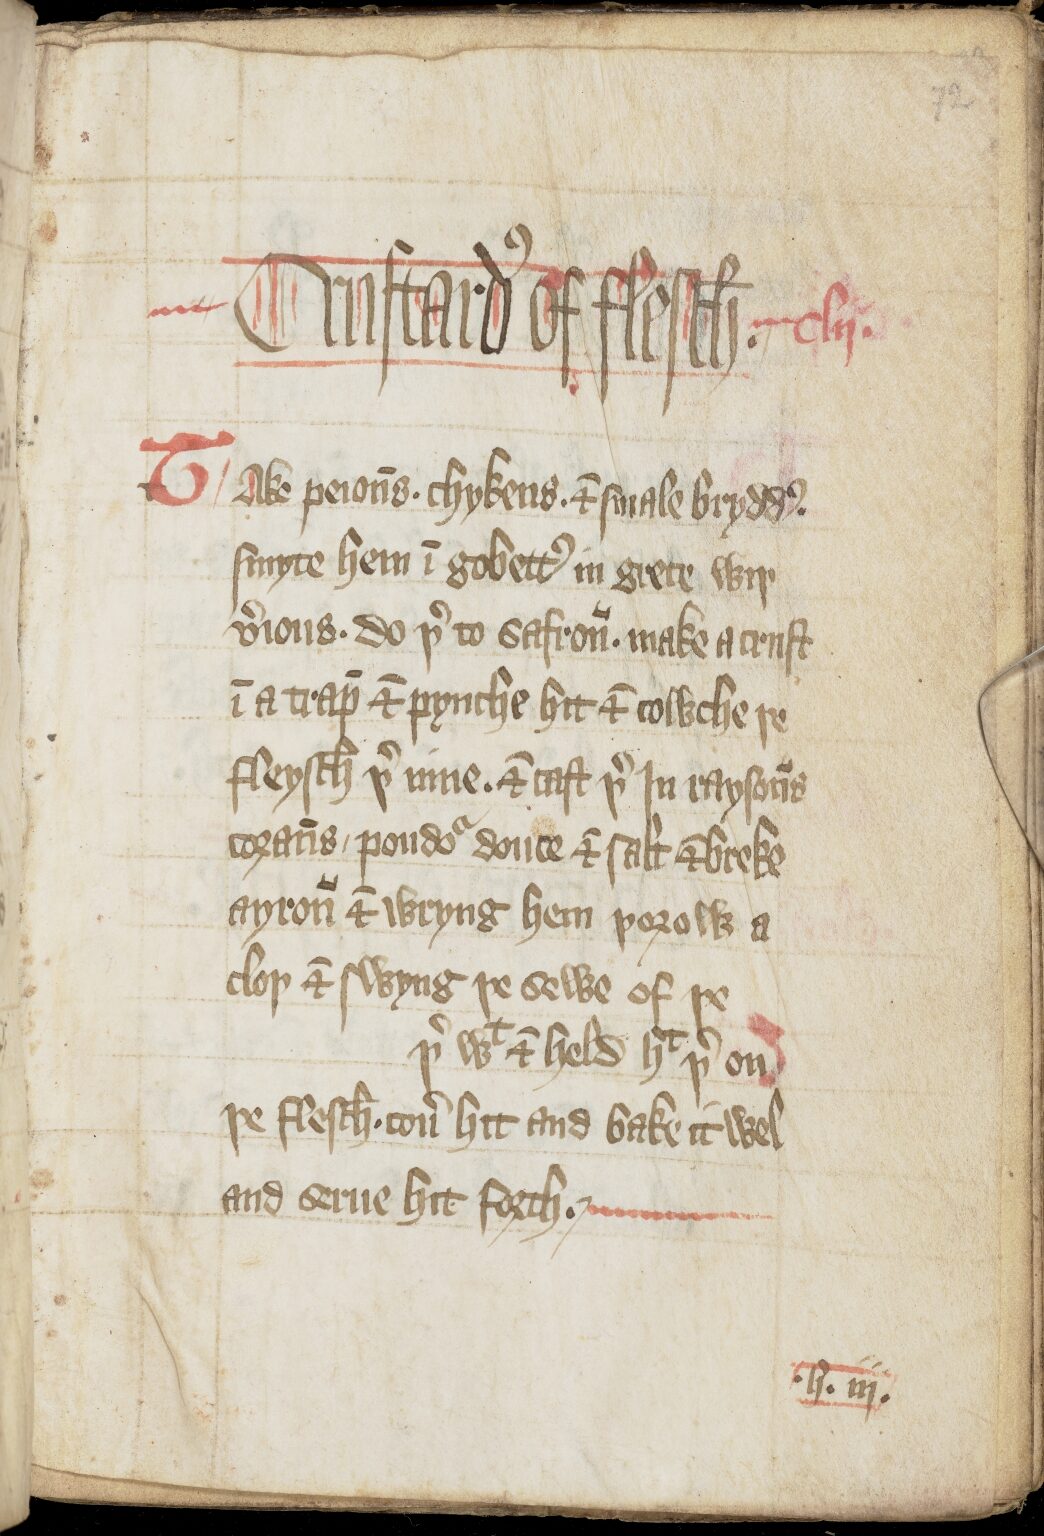 72
Crustardꝰ of flesch. clij.
Take peiouns̄. chykens. ⁊ smale bryddꝰ.
smyte hem ī gobettꝰ in grete wiþ
v̾ious. do þ̾ to safroū. make a crust
ī a trap̄ ⁊ pynche hit ⁊ cowche þe
fleysch þ̾ inne. ⁊ cast þ̾ In raysoūs
coraūs / poudoᵃ douce ⁊ salt ⁊ breke
ayroū ⁊ wryng hem þorow a
cloþ ⁊ swyng þe sewe of þe
þ̾ wᵗ ⁊ held hᵗ þ̾ on
þe flesch. cou̾ hit and bake it wel
and serue hit forth.
.h. iij.